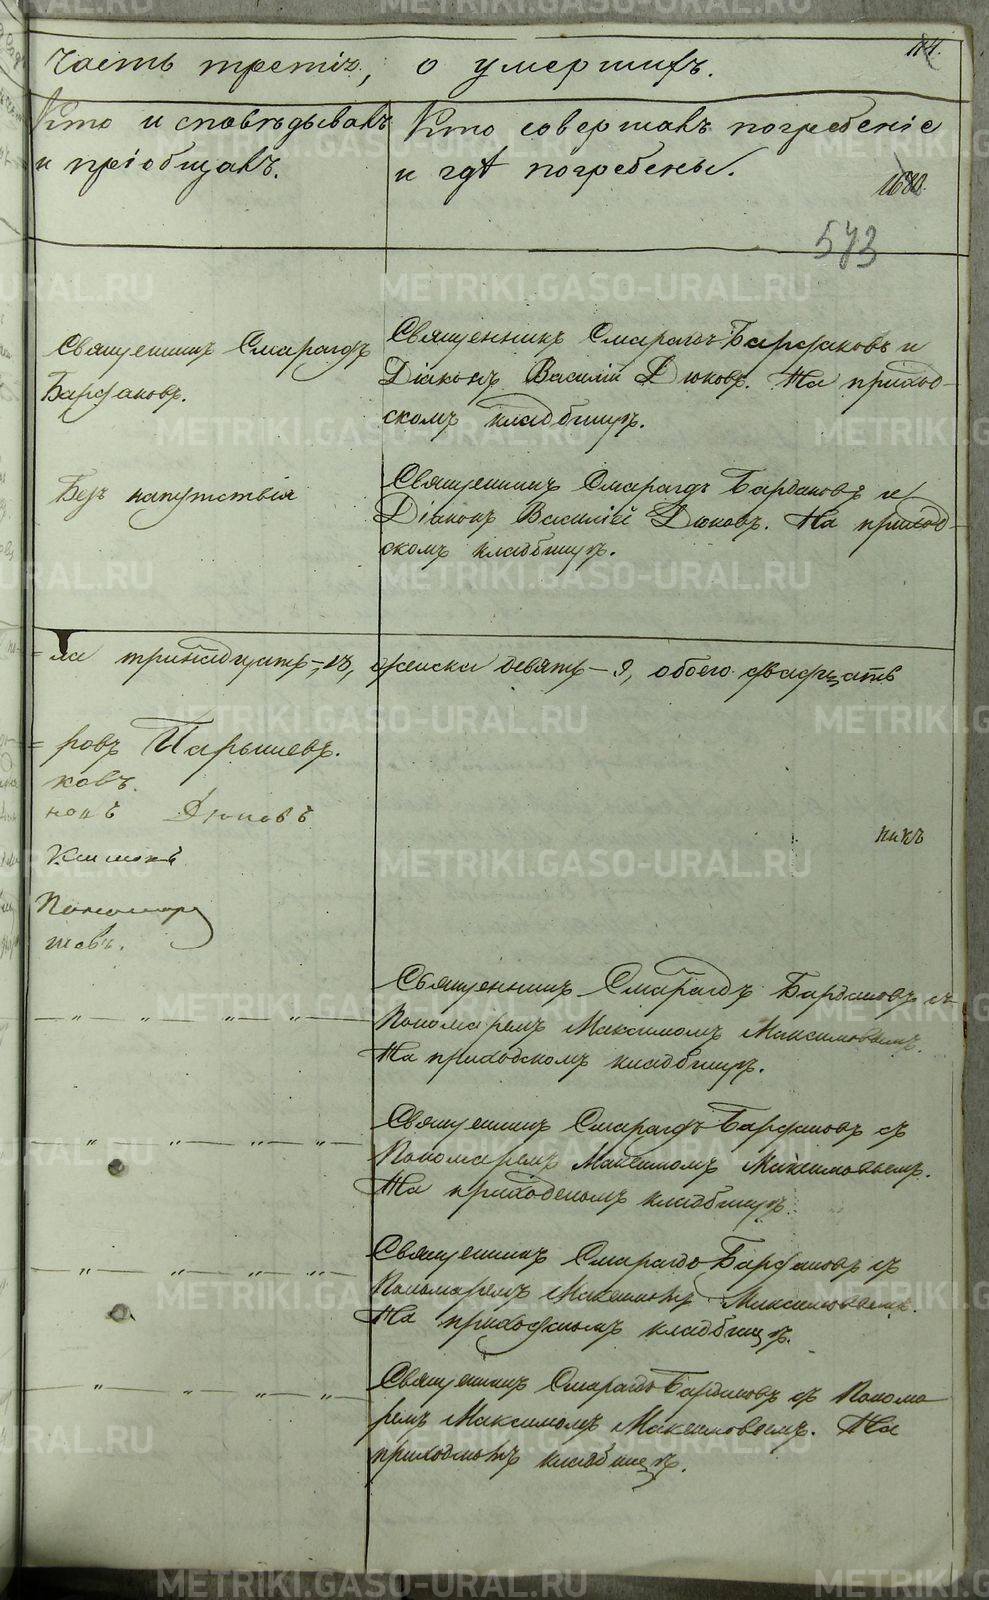 Часть третія, о умершихъ.
Кто исповѣдывалъ и пріобщалъ.
Кто совершалъ погребеніе и гдѣ погребены.
573
Священникъ Смарагдъ
Бардаковъ.
Священникъ Смарагдъ Бардаковъ и
Діаконъ Василій Дюковъ. На приход-
скомъ кладбищѣ.
Безъ напутствія
Священникъ Смарагдъ Бардаковъ и
Діаконъ Василій Дюковъ. На приход-
скомъ кладбищѣ.
=ла тринадцать-13, женска девять-9, обоего двадцать
=ровъ Парышевъ.
ковъ.
нонъ Дюковъ
Пономарь
Священникъ Смарагдъ Бардаковъ съ
Пономаремъ Максимомъ Максимовымъ.
На приходскомъ кладбищѣ.
Священникъ Смарагдъ Бардаковъ съ
Пономаремъ Максимомъ Максимовымъ.
На приходскомъ кладбищѣ.
Священникъ Смарагдъ Бардаковъ съ
Пономаремъ Максимомъ Максимовымъ.
На приходскомъ кладбищѣ.
Священникъ Смарагдъ Бардаковъ съ Понома-
ремъ Максимомъ Максимовымъ. На
приходскомъ кладбищѣ.
METRIKI.GASO-URAL.RU